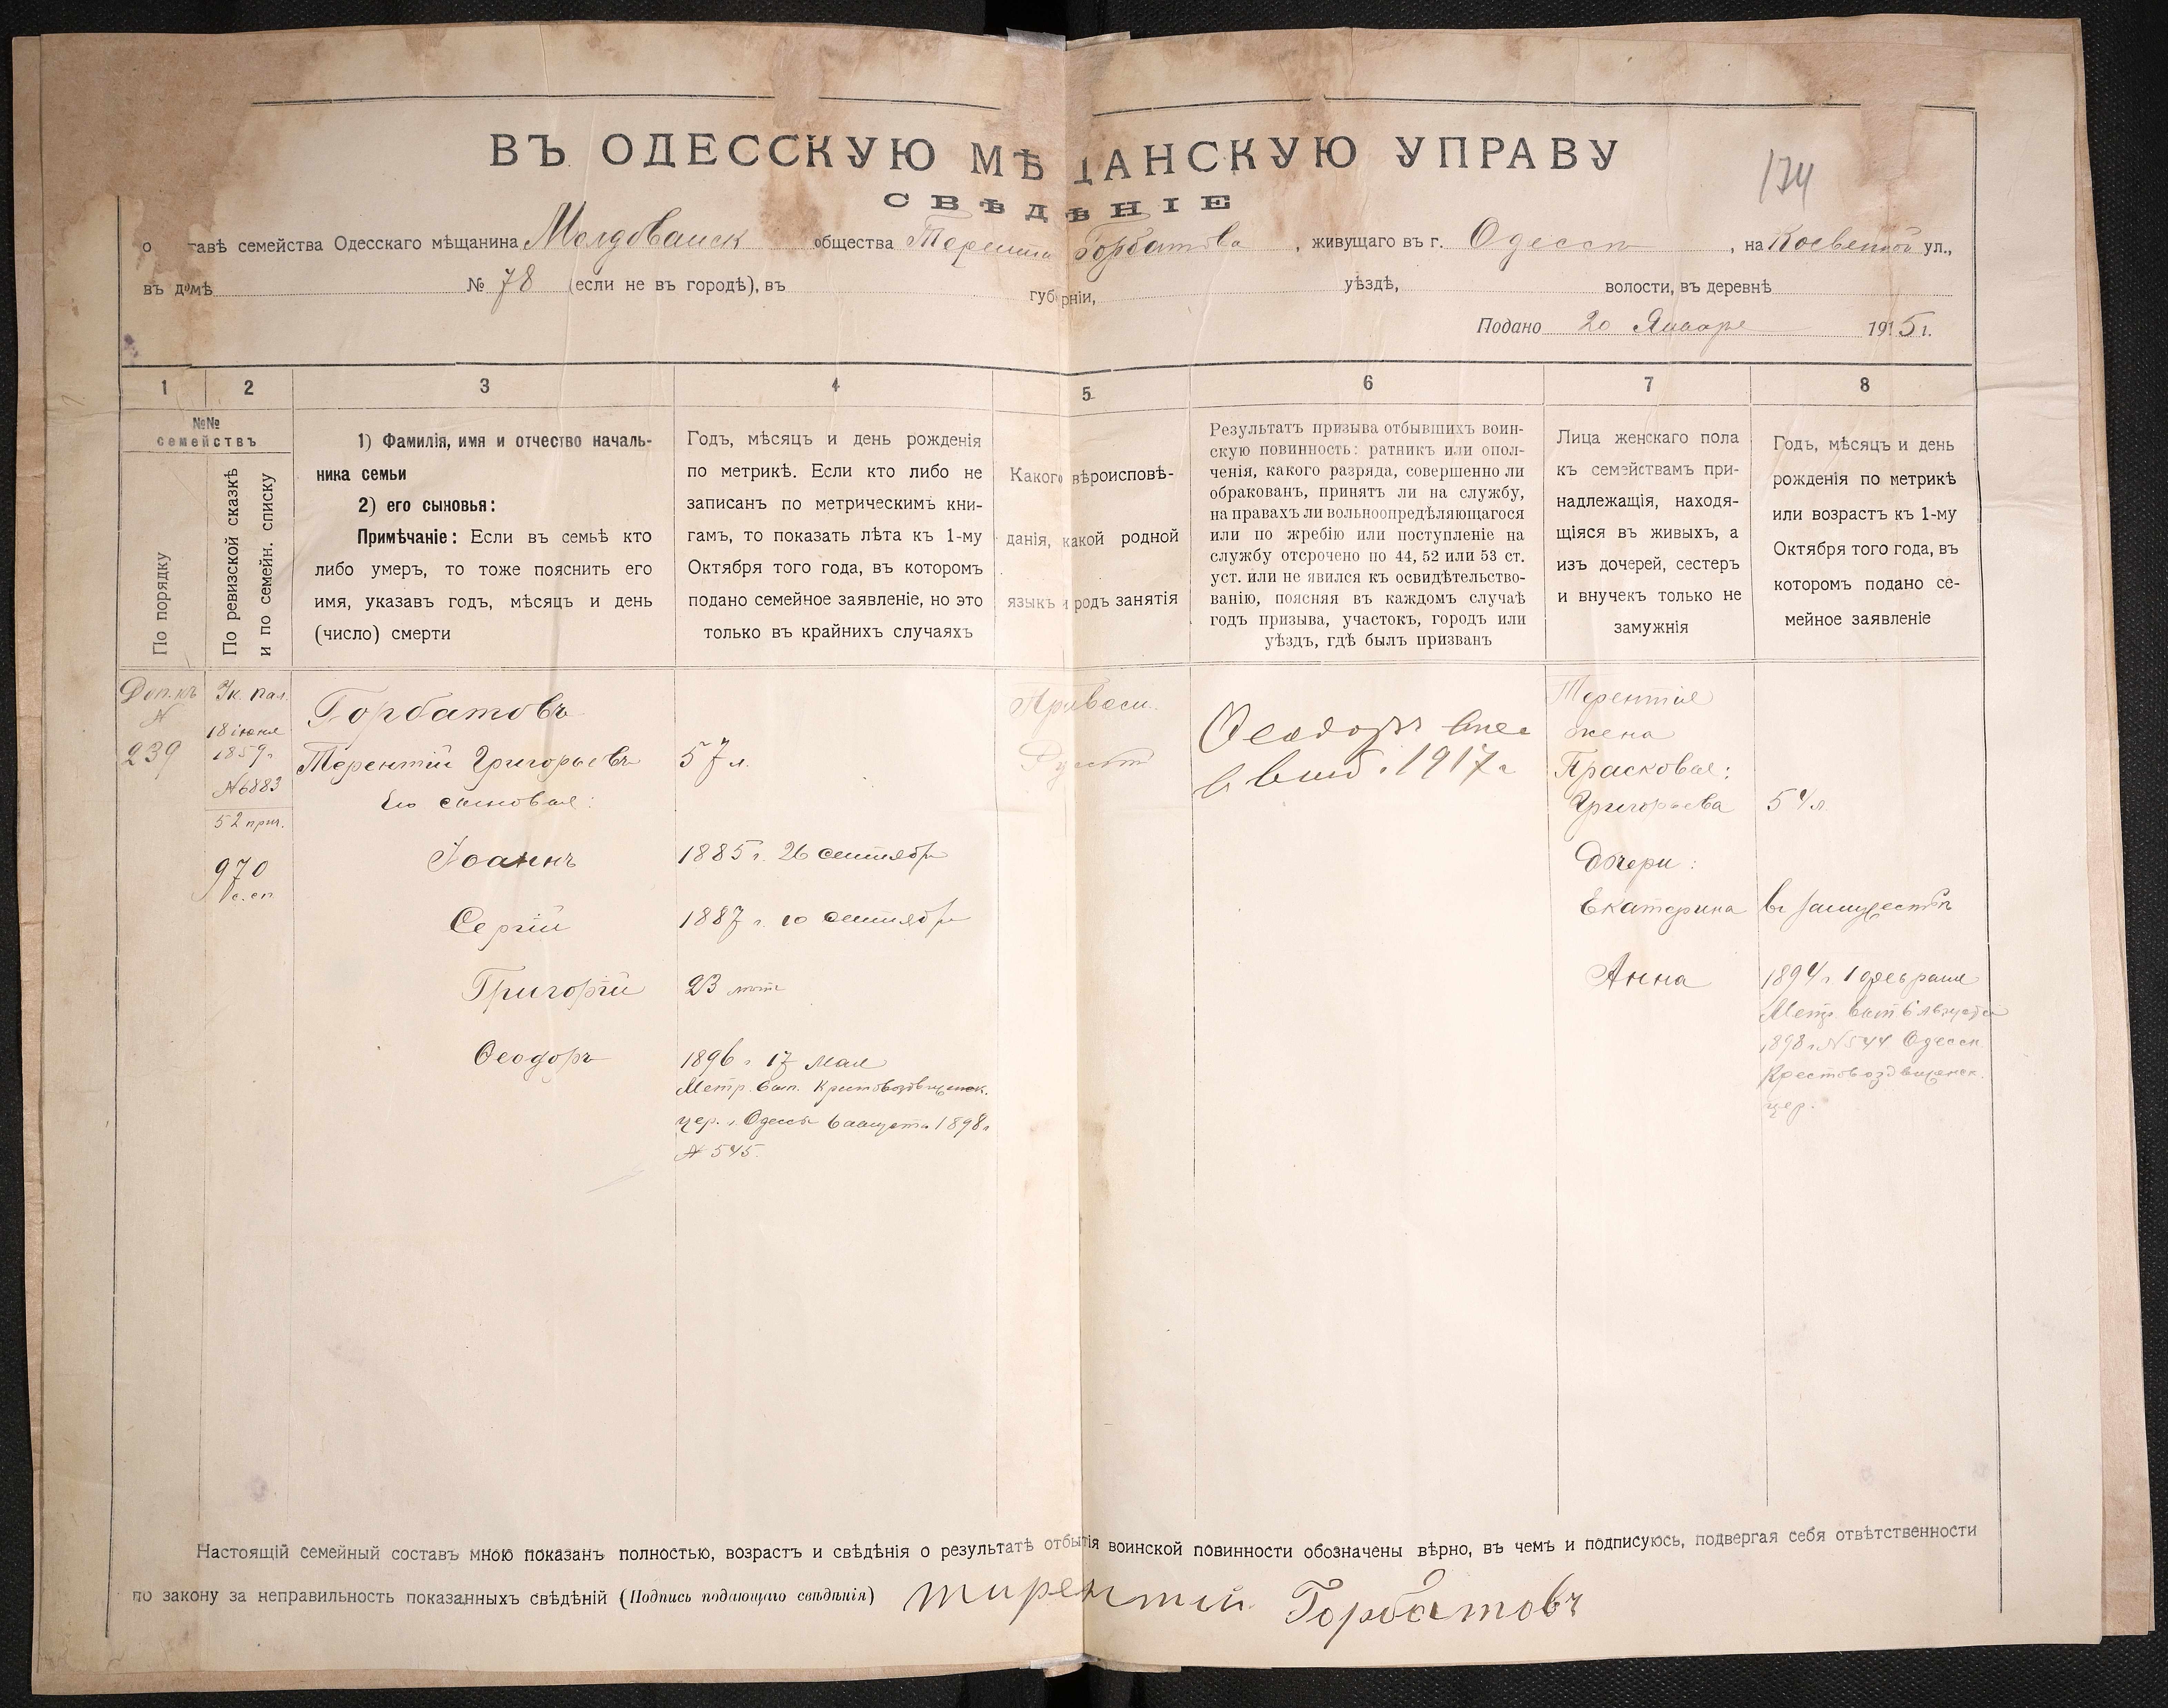 174
ВЪ ОДЕССКУЮ МѢ ЩАНСКУЮ УПРАВУ
СВѢДѢНІЕ
о тавѣ семейства Одесскаго мѣщанина Молдованск общества Терентия Горбатова, живущаго въ г. Одессѣ, на Косвенной ул.,
въ домѣ № 78 (если не въ городѣ), въ губерніи, уѣздѣ, волости, въ деревнѣ
Подано 20 Января 1915 г.
1 2 3 4 5 6 7 8
№№
семействъ
По порядку
По ревизской сказкѣ
и по семейн. списку
1) Фамилія, имя и отчество началь-
ника семьи
2) его сыновья:
Примѣчаніе: Если въ семьѣ кто
либо умеръ, то тоже пояснить его
имя, указавъ годъ, мѣсяцъ и день
(число) смерти
Годъ, мѣсяцъ и день рожденія
по метрикѣ. Если кто либо не
записанъ по метрическимъ кни-
гамъ, то показать лѣта къ 1-му
Октября того года, въ которомъ
подано семейное заявленіе, но это
только въ крайнихъ случаяхъ
Какого вѣроисповѣ-
данія, какой родной
языкъ и родъ занятія
Результатъ призыва отбывшихъ воин-
скую повинность: ратникъ или опол-
ченія, какого разряда, совершенно ли
обракованъ, принятъ ли на службу,
на правахъ ли вольноопредѣляющагося
или по жребію или поступленіе на
службу отсрочено по 44, 52 или 53 ст.
уст. или не явился къ освидѣтельство-
ванію, поясняя въ каждомъ случаѣ
годъ призыва, участокъ, городъ или
уѣздъ, гдѣ былъ призванъ
Лица женскаго пола
къ семействамъ при-
надлежащія, находя-
щіяся въ живыхъ, а
изъ дочерей, сестеръ
и внучекъ только не
замужнія
Годъ, мѣсяцъ и день
рожденія по метрикѣ
или возрастъ къ 1-му
Октября того года, въ
которомъ подано се-
мейное заявленіе
Доп. къ
№
239
Ук. пал.
18 іюня
1859 г.
№ 6883
52 прич.
970
с. сп
Горбатовъ
Терентій Григорьевъ 57 л.
Его сыновья:
Іоаннъ 1885 г. 26 сентября
Сергій 1887 г. 10 сентября
Григорій 23 лѣтъ
Ѳеодоръ 1896 г. 17 Мая
Метр. вып. Крестовоздвиженск.
цер. г. Одессы 6 августа 1898 г
№ 545.
Правосл.
Русскій
Ѳеодоръ внес
в 1917 г
Терентія
жена
Прасковья:
Григорьева 54 л
Дочери:
Екатерина въ замужествѣ
Анна 1894 г. 1 февраля
Метр. вып 6 Августа
1898 г. № 544 Одесск
Крестовоздвиженск.
цер.
Настоящій семейный составъ мною показанъ полностью, возрастъ и свѣдѣнія о результатѣ отбытія воинской повинности обозначены вѣрно, въ чемъ и подписуюсь, подвергая себя отвѣтственности
по закону за неправильность показанныхъ свѣдѣній (Подпись подающаго свѣдѣнія) тирентий Горбатовъ